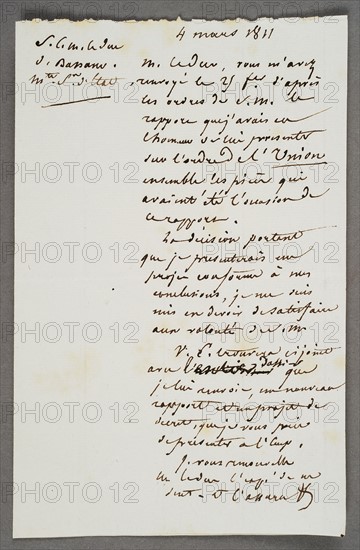 4 mars 1811
S. E. M. le duc
de Bassano
mtre Sre d'état.
M. le duc, vous m'avez
renvoyé le 25 fer d'après
les ordres de S. M. le
rapport que j'avais eu
l'honneur de lui présenter
sur l'ordre de l'Union
ensemble les pièces qui
avaient été l'occasion de
ce rapport.
La décision portant
que je présenterais un
projet conforme à mes
conclusions, je me suis
mis en devoir de satisfaire
aux volontés de S. M.
V. E. trouvera ci joint
avec l' dossier que
je lui renvoie, un nouveau
rapport et un projet de
décret que je vous prie
de présenter à l'Emp.
Je vous renouvelle
M. le duc l'expr. de
sent. et l'assura
PHOTO 12